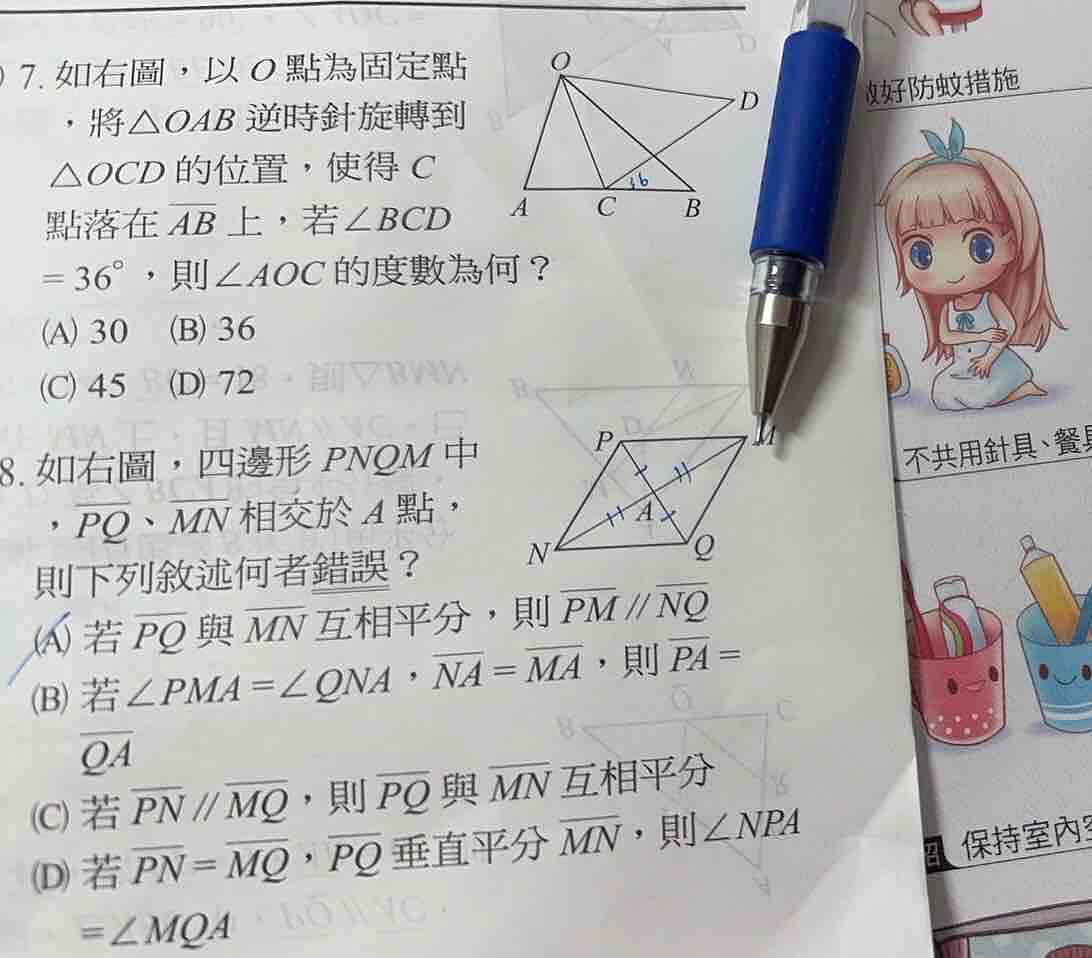 7. 如右圖，以 O 點為固定點
，將△OAB 逆時針旋轉到
△OCD 的位置，使得 C
點落在 AB 上，若∠BCD
= 36°，則∠AOC 的度數為何？
(A) 30 (B) 36
(C) 45 (D) 72
O
D
36
A C B
8. 如右圖，四邊形 PNQM 中
，PQ、MN 相交於 A 點，
則下列敘述何者錯誤？
P M
A
N Q
(A) 若 PQ 與 MN 互相平分，則 PM // NQ
(B) 若∠PMA = ∠QNA，NA = MA，則 PA =
QA
(C) 若 PN // MQ，則 PQ 與 MN 互相平分
(D) 若 PN = MQ，PQ 垂直平分 MN，則∠NPA
= ∠MQA
好防蚊措施
不共用針具、餐
保持室內